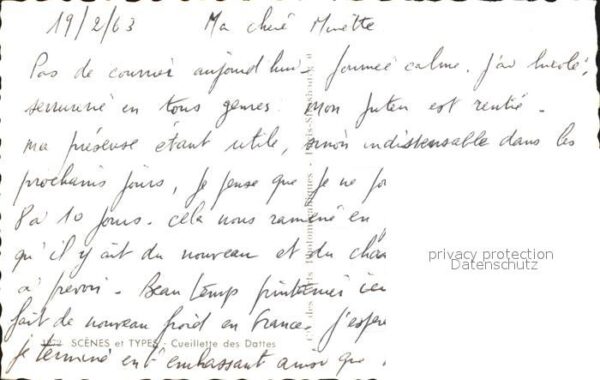 19/2/63 Ma chère Minette
Pas de courrier aujourd'hui - Journée calme. J'ai bricolé,
serrurerie en tous genres. Mon juteux est rentré -
ma présence étant utile, sinon indispensable dans les
prochains jours, je pense que je ne
8 à 10 jours. cela nous ramène en
qu'il y ait du nouveau et du
à prévoir - Beau temps printanier
fait de nouveau froid en France. J'espère
je termine en t'embrassant ainsi que
SCÈNES et TYPES - Cueillette des Dattes
privacy protection
Datenschutz